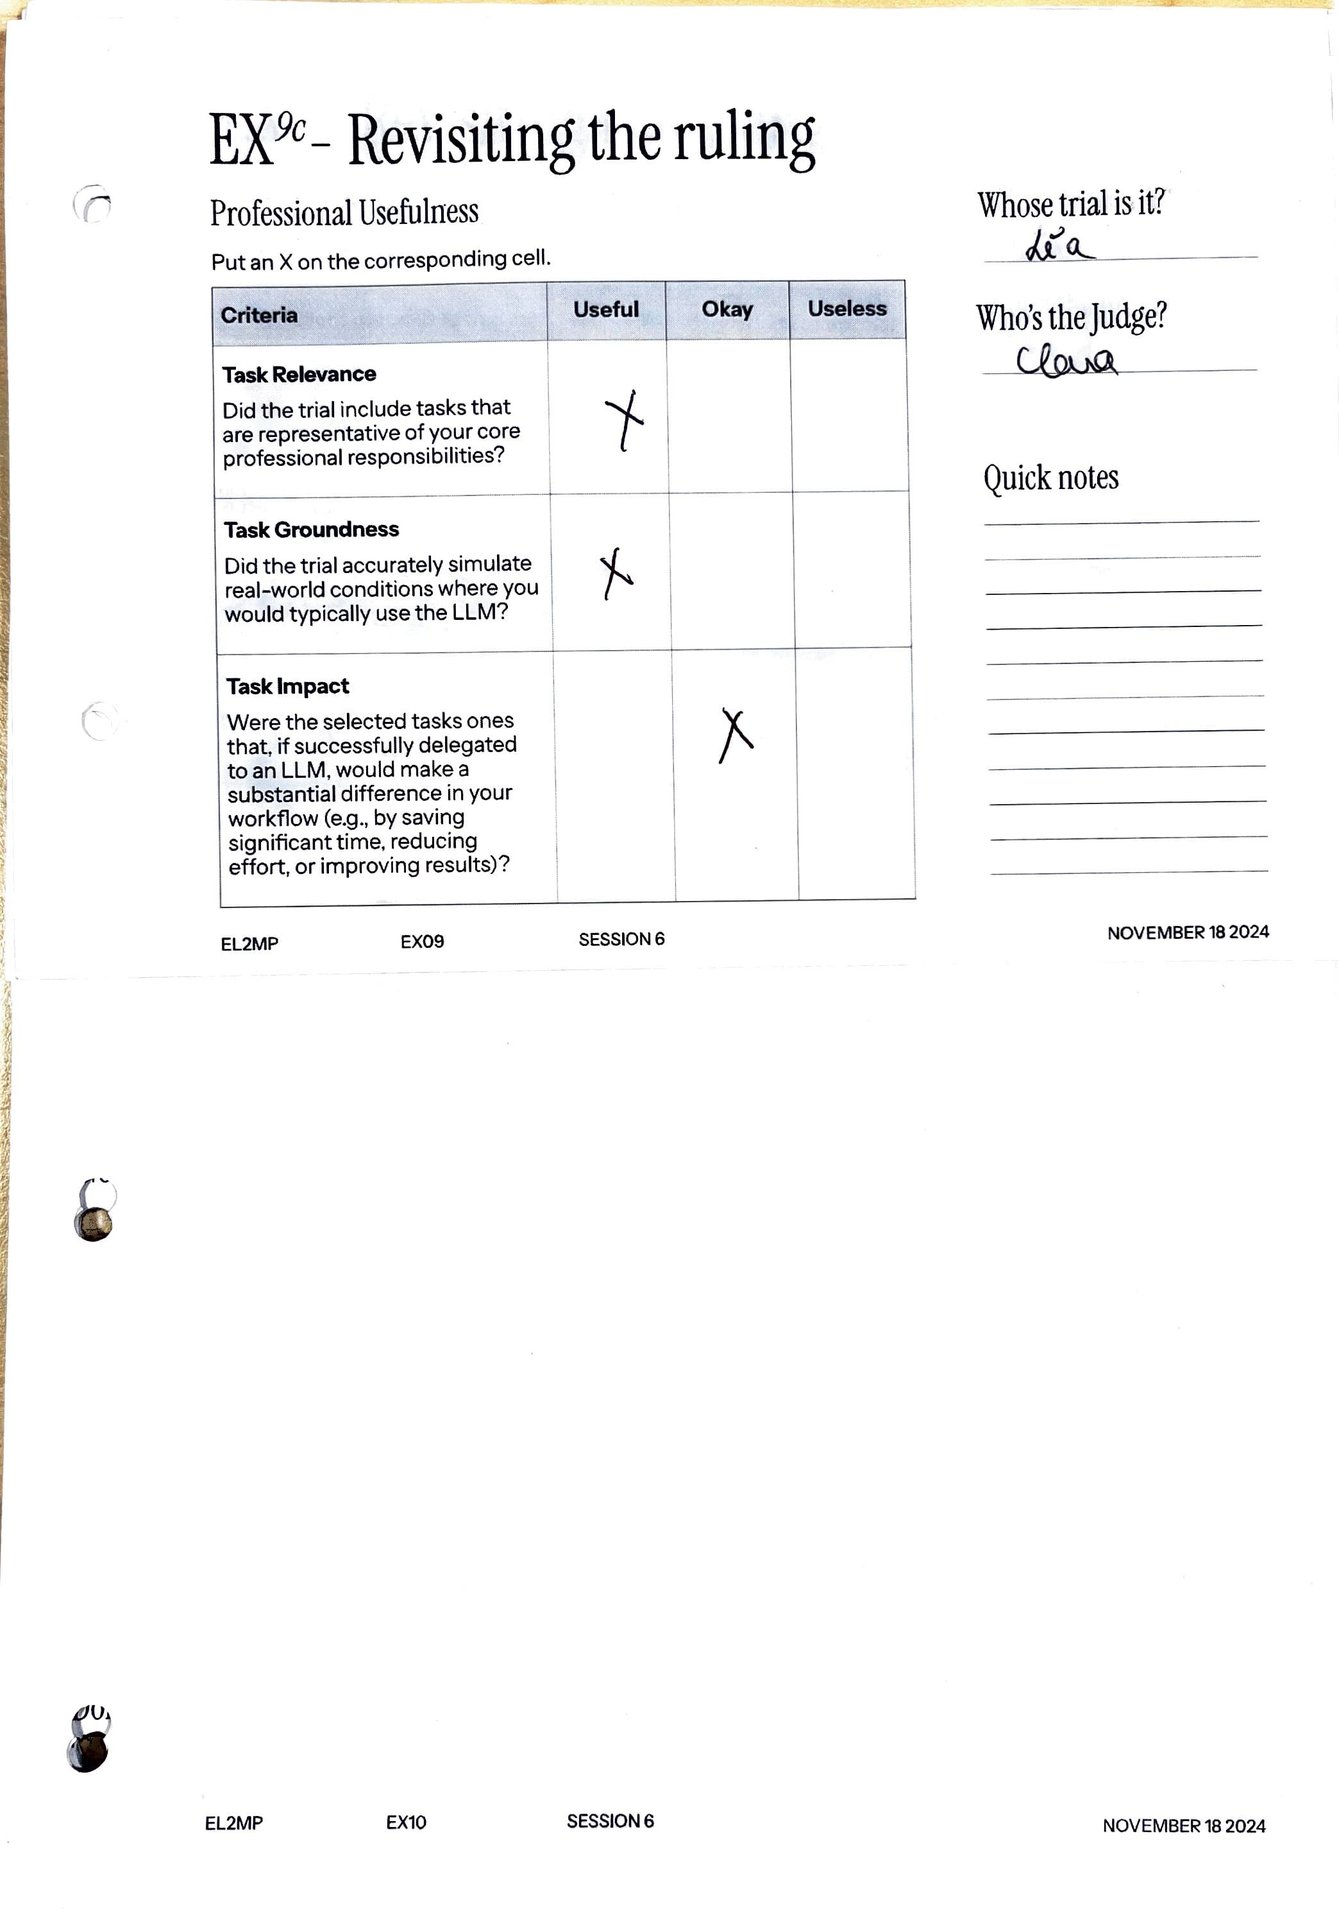 EX9c – Revisiting the ruling
Professional Usefulness
Put an X on the corresponding cell.
Criteria Useful Okay Useless
Task Relevance
Did the trial include tasks that
are representative of your core
professional responsibilities?
X
Task Groundness
Did the trial accurately simulate
real-world conditions where you
would typically use the LLM?
X
Task Impact
Were the selected tasks ones
that, if successfully delegated
to an LLM, would make a
substantial difference in your
workflow (e.g., by saving
significant time, reducing
effort, or improving results)?
X
Whose trial is it?
Léa
Who's the Judge?
Clara
Quick notes
EL2MP EX09 SESSION 6 NOVEMBER 18 2024
EL2MP EX10 SESSION 6 NOVEMBER 18 2024